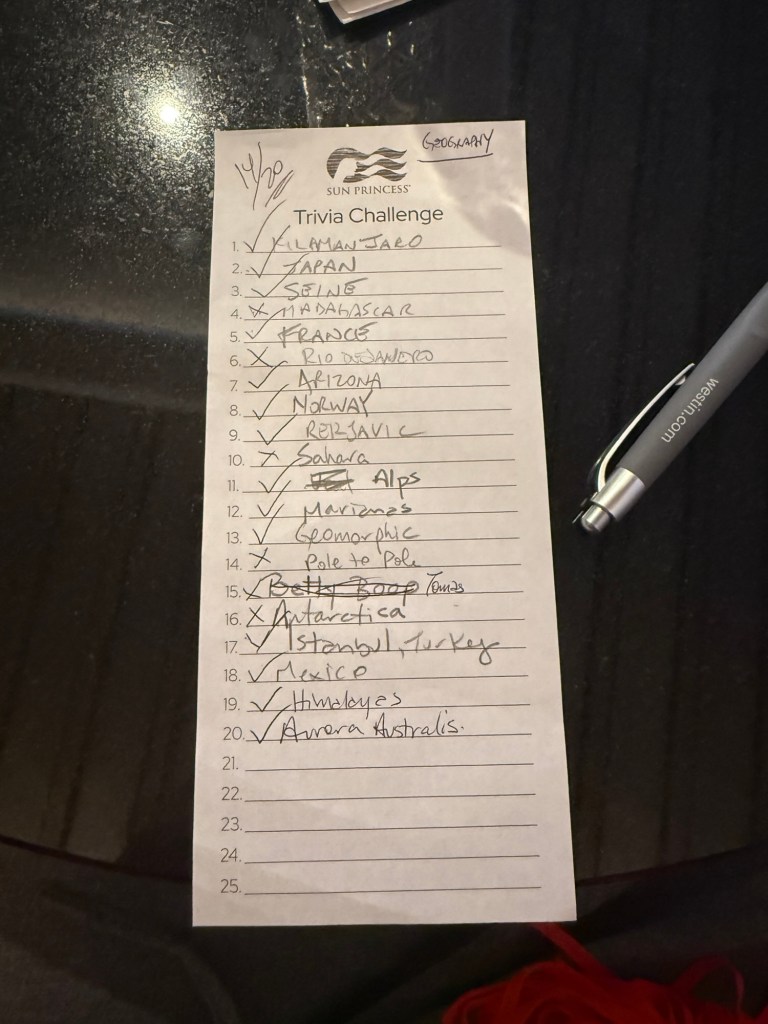 14/20
GEOGRAPHY
SUN PRINCESS®
Trivia Challenge
1. ✓ KILAMANJARO
2. ✓ JAPAN
3. ✓ SEINE
4. X MADAGASCAR
5. ✓ FRANCE
6. X RIO DEJANERO
7. ✓ ARIZONA
8. ✓ NORWAY
9. ✓ REIKJAVIC
10. X Sahara
11. ✓ Alps
12. ✓ Marianas
13. ✓ Geomorphic
14. X Pole to Pole
15. ✓ Betty Boop Tomas
16. X Antarctica
17. ✓ Istanbul, Turkey
18. ✓ Mexico
19. ✓ Himalayas
20. ✓ Aurora Australis.
21.
22.
23.
24.
25.
westin.com